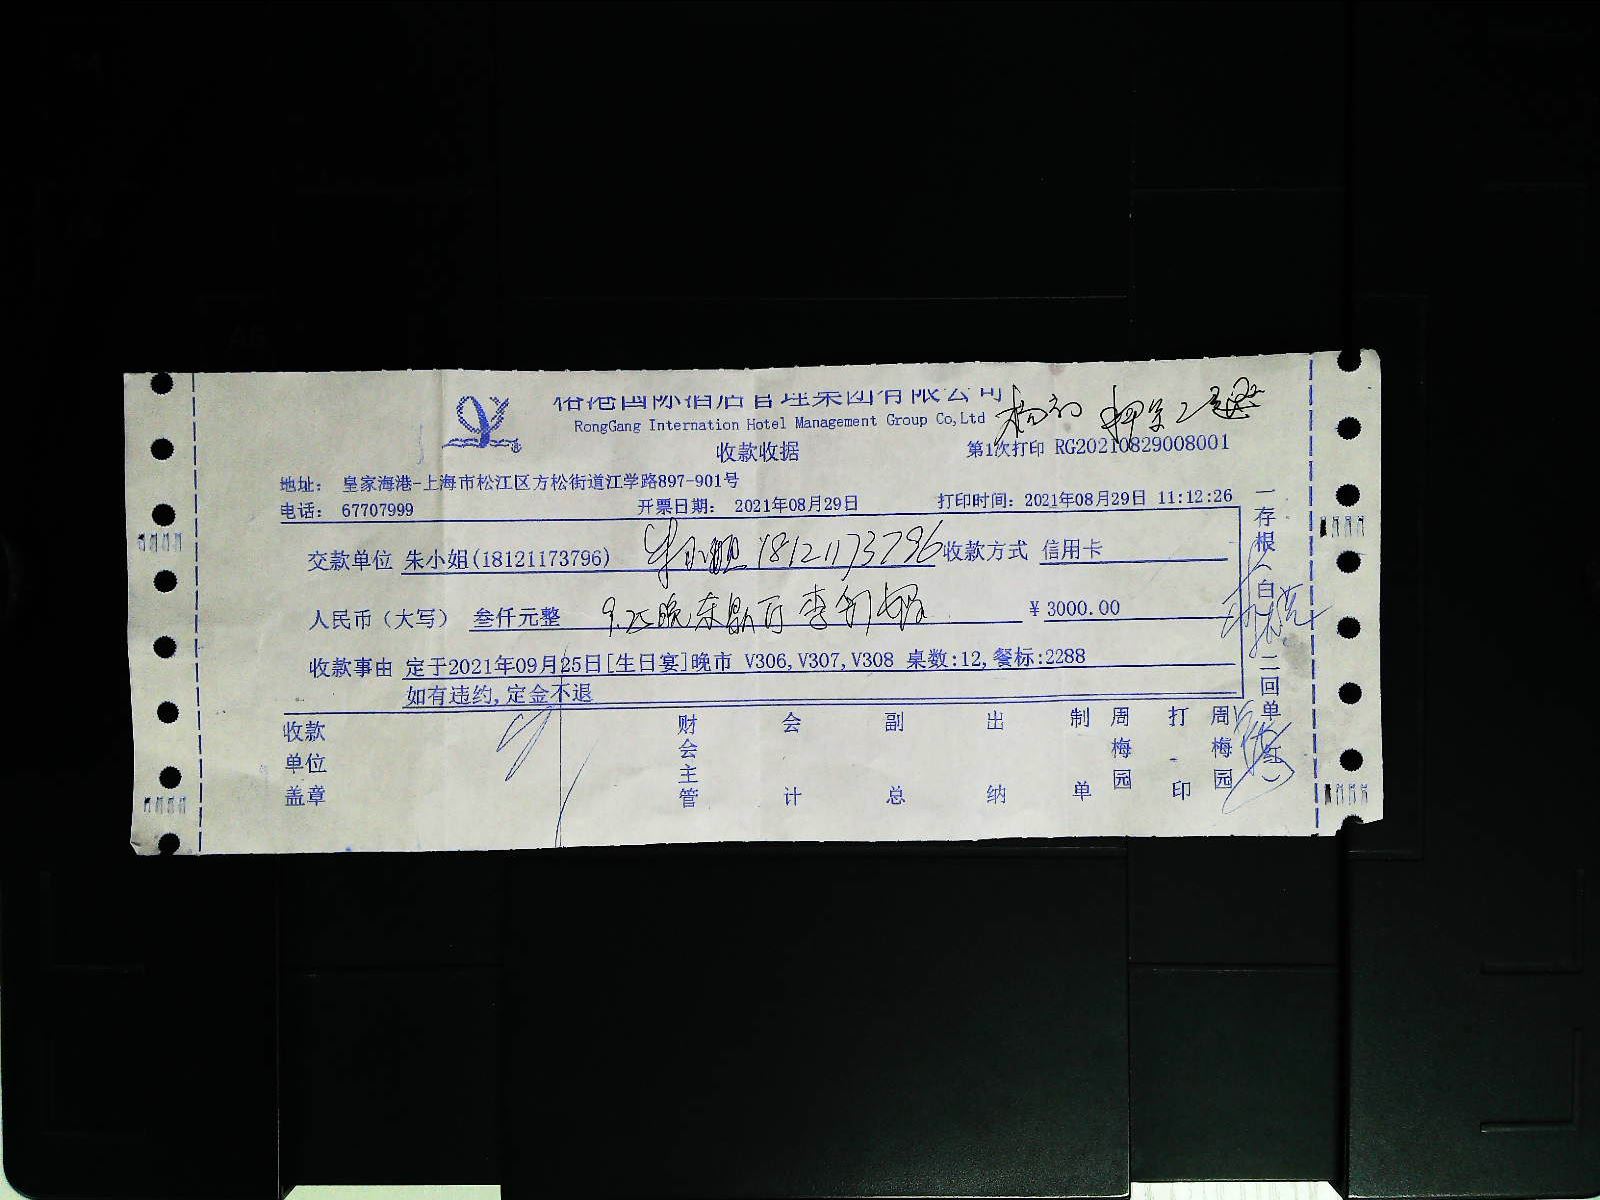 裕港国际酒店管理集团有限公司
RongGang Internation Hotel Management Group Co,Ltd
收款收据
第1次打印 RG20210829008001
地址： 皇家海港-上海市松江区方松街道江学路897-901号
电话： 67707999 开票日期： 2021年08月29日 打印时间：2021年08月29日 11:12:26
交款单位 朱小姐(18121173796) 18121173796 收款方式 信用卡
人民币（大写） 叁仟元整 9.25晚 ￥3000.00
收款事由 定于2021年09月25日[生日宴]晚市 V306,V307,V308 桌数:12,餐标:2288
如有违约,定金不退
收款单位盖章 财会主管 会计 副总 出纳 制单 周梅园 打印 周梅园
一存根（白）二回单（红）